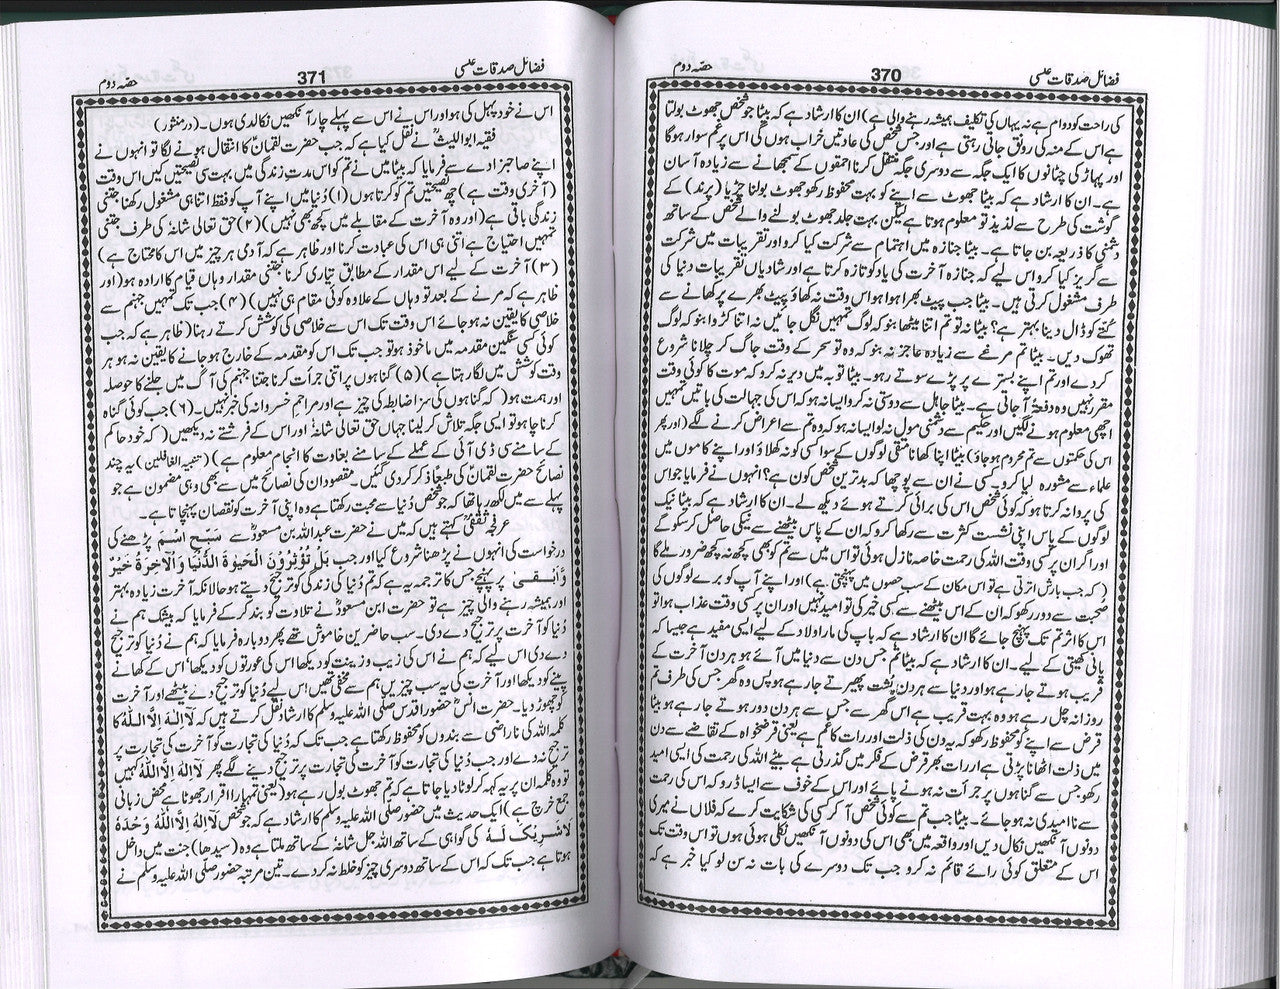 فضائل صدقات عکسی 370 حصہ دوم
کی راحت کو دوام ہے نہ یہاں کی تکلیف ہمیشہ رہنے والی ہے) ان کا ارشاد ہے کہ بیٹا جو شخص جھوٹ بولتا
ہے اس کے منہ کی رونق جاتی رہتی ہے اور جس شخص کی عادتیں خراب ہوں گی اس پر غم سوار ہوگا
اور پہاڑ کی چٹانوں کا ایک جگہ سے دوسری جگہ منتقل کرنا احمقوں کے سمجھانے سے زیادہ آسان
ہے۔ ان کا ارشاد ہے کہ بیٹا جھوٹ سے اپنے کو بہت محفوظ رکھو جھوٹ بولنا چڑیا (پرند) کے
گوشت کی طرح سے لذیذ تو معلوم ہوتا ہے لیکن بہت جلد جھوٹ بولنے والے شخص کے ساتھ
دشمنی کا ذریعہ بن جاتا ہے۔ بیٹا جنازہ میں اہتمام سے شرکت کیا کرو اور تقریبات میں شرکت
سے گریز کیا کرو اس لیے کہ جنازہ آخرت کی یاد کو تازہ کرتا ہے اور شادیاں تقریبات دنیا کی
طرف مشغول کرتی ہیں۔ بیٹا جب پیٹ بھرا ہوا ہو اس وقت نہ کھاؤ پیٹ بھرے پر کھانے سے
کتے کو ڈال دینا بہتر ہے؟ بیٹا نہ تو تم اتنا میٹھا بنو کہ لوگ تمہیں نگل جائیں نہ اتنا کڑوا بنو کہ لوگ
تھوک دیں۔ بیٹا تم مرغے سے زیادہ عاجز نہ بنو کہ وہ تو سحر کے وقت جاگ کر چلانا شروع
کر دے اور تم اپنے بسترے پر پڑے سوتے رہو۔ بیٹا توبہ میں دیر نہ کرو کہ موت کا کوئی وقت
مقرر نہیں وہ دفعۃً آ جاتی ہے۔ بیٹا جاہل سے دوستی نہ کرو ایسا نہ ہو کہ اس کی جہالت کی باتیں تمہیں
اچھی معلوم ہونے لگیں اور حکیم سے دشمنی مول نہ لو ایسا نہ ہو کہ وہ تم سے اعراض کرنے لگے (اور پھر
اس کی حکمتوں سے تم محروم ہو جاؤ) بیٹا اپنا کھانا متقی لوگوں کے سوا کسی کو نہ کھلاؤ اور اپنے کاموں میں
علماء سے مشورہ لیا کرو۔ کسی نے ان سے پوچھا کہ بدترین شخص کون ہے؟ انہوں نے فرمایا جو اس
کی پروا نہ کرتا ہو کہ کوئی شخص اس کی برائی کرتے ہوئے دیکھ لے۔ ان کا ارشاد ہے کہ بیٹا نیک
لوگوں کے پاس اپنی نشست کثرت سے رکھا کرو کہ ان کے پاس بیٹھنے سے نیکی حاصل کر سکو گے
اور اگر ان پر کسی وقت اللہ کی رحمت خاصہ نازل ہوئی تو اس میں سے تم کو بھی کچھ نہ کچھ ضرور ملے گا
(کہ جب بارش اترتی ہے تو اس مکان کے سب حصوں میں پہنچتی ہے) اور اپنے آپ کو برے لوگوں کی
صحبت سے دور رکھو کہ ان کے پاس بیٹھنے سے کسی خیر کی تو امید نہیں اور ان پر کسی وقت عذاب ہوا تو
اس کا اثر تم تک پہنچ جائے گا ان کا ارشاد ہے کہ باپ کی مار اولاد کے لیے ایسی مفید ہے جیسا کہ
پانی کھیتی کے لیے۔ ان کا ارشاد ہے کہ بیٹا تم جس دن سے دنیا میں آئے ہو ہر دن آخرت کے
قریب ہوتے جا رہے ہو اور دنیا سے ہر دن پشت پھیرتے جا رہے ہو پس وہ گھر جس کی طرف تم
روزانہ چل رہے ہو وہ بہت قریب ہے اس گھر سے جس سے ہر دن دور ہوتے جا رہے ہو بیٹا
قرض سے اپنے کو محفوظ رکھو کہ یہ دن کی ذلت اور رات کا غم ہے یعنی قرض خواہ کے تقاضے سے دن
میں ذلت اٹھانا پڑتی ہے اور رات بھر قرض کے فکر میں گذرتی ہے بیٹے اللہ کی رحمت کی ایسی امید
رکھو جس سے گناہوں پر جرأت نہ ہونے پائے اور اس کے خوف سے ایسا ڈرو کہ اس کی رحمت
سے نا امیدی نہ ہو جائے۔ بیٹا جب تم سے کوئی شخص آ کر کسی کی شکایت کرے کہ فلاں نے میری
دونوں آنکھیں نکال دیں اور واقعہ میں بھی اس کی دونوں آنکھیں نکلی ہوئی ہوں تو اس وقت تک
اس کے متعلق کوئی رائے قائم نہ کرو جب تک دوسرے کی بات نہ سن لو کیا خبر ہے کہ
فضائل صدقات عکسی 371 حصہ دوم
اس نے خود پہل کی ہو اور اس نے اس سے پہلے چار آنکھیں نکالدی ہوں۔ (درمنثور)
فقیہ ابواللیثؒ نے نقل کیا ہے کہ جب حضرت لقمانؑ کا انتقال ہونے لگا تو انہوں نے
اپنے صاحبزادے سے فرمایا کہ بیٹا میں نے تم کو اس مدت زندگی میں بہت سی نصیحتیں کیں اس وقت
(آخری وقت ہے) چھ نصیحتیں تم کو کرتا ہوں (۱) دُنیا میں اپنے آپ کو فقط اتنا ہی مشغول رکھنا جتنی
زندگی باقی ہے (اور وہ آخرت کے مقابلے میں کچھ بھی نہیں) (۲) حق تعالیٰ شانہٗ کی طرف جتنی
تمہیں احتیاج ہے اتنی ہی اس کی عبادت کرنا اور ظاہر ہے کہ آدمی ہر چیز میں اس کا محتاج ہے)
(۳) آخرت کے لیے اس مقدار کے مطابق تیاری کرنا جتنی مقدار وہاں قیام کا ارادہ ہو (اور
ظاہر ہے کہ مرنے کے بعد تو وہاں کے علاوہ کوئی مقام ہی نہیں) (۴) جب تک تمہیں جہنم سے
خلاصی کا یقین نہ ہو جائے اس وقت تک اس سے خلاصی کی کوشش کرتے رہنا (ظاہر ہے کہ جب
کوئی کسی سنگین مقدمہ میں ماخوذ ہو تو جب تک اس کو مقدمہ کے خارج ہو جانے کا یقین نہ ہو ہر
وقت کوشش میں لگا رہتا ہے) (۵) گناہوں پر اتنی جرأت کرنا جتنا جہنم کی آگ میں جلنے کا حوصلہ
اور ہمت ہو (کہ گناہوں کی سزا ضابطہ کی چیز ہے اور مراحم خسروانہ کی خبر نہیں۔ (۶) جب کوئی گناہ
کرنا چاہو تو ایسی جگہ تلاش کر لینا جہاں حق تعالیٰ شانہٗ اور اس کے فرشتے نہ دیکھیں (کہ خود حاکم
کے سامنے سی ڈی آئی کے عملے کے سامنے بغاوت کا انجام معلوم ہے) (تنبیہ الغافلین) یہ چند
نصائح حضرت لقمانؑ کی طبعاً ذکر کر دی گئیں۔ مقصود ان کی نصائح میں سے بھی وہی مضمون ہے جو
پہلے سے میں لکھ رہا تھا کہ جو شخص دُنیا سے محبت رکھتا ہے وہ اپنی آخرت کو نقصان پہنچاتا ہے۔
عرفجہ ثقفیؒ کہتے ہیں کہ میں نے حضرت عبداللہ بن مسعودؓ سے سَبِّحِ اسْمَ پڑھنے کی
درخواست کی انہوں نے پڑھنا شروع کیا اور جب بَلْ تُؤْثِرُوْنَ الْحَیٰوۃَ الدُّنْیَا وَالْاٰخِرَۃُ خَیْرٌ
وَّاَبْقٰی پر پہنچے جس کا ترجمہ یہ ہے کہ تم دُنیا کی زندگی کو ترجیح دیتے ہو حالانکہ آخرت زیادہ بہتر
اور ہمیشہ رہنے والی چیز ہے تو حضرت ابن مسعودؓ نے تلاوت کو بند کر کے فرمایا کہ بیشک ہم نے
دُنیا کو آخرت پر ترجیح دے دی۔ سب حاضرین خاموش تھے پھر دوبارہ فرمایا کہ ہم نے دُنیا کو ترجیح
دے دی اس لیے کہ ہم نے اس کی زیب و زینت کو دیکھا اس کی عورتوں کو دیکھا، اس کے کھانے
پینے کو دیکھا اور آخرت کی یہ سب چیزیں ہم سے مخفی تھیں! اس لیے دُنیا کو ترجیح دے بیٹھے اور آخرت
کو چھوڑ دیا۔ حضرت انسؓ حضور اقدس صلی اللہ علیہ وسلم کا ارشاد نقل کرتے ہیں کہ لَا اِلٰہَ اِلَّا اللّٰہُ کا
کلمہ اللہ کی ناراضی سے بندوں کو محفوظ رکھتا ہے جب تک کہ دُنیا کی تجارت کو آخرت کی تجارت پر
ترجیح نہ دے اور جب دُنیا کی تجارت کو آخرت کی تجارت پر ترجیح دینے لگے پھر لَا اِلٰہَ اِلَّا اللّٰہُ کہیں
تو وہ کلمہ ان پر یہ کہہ کر لوٹا دیا جاتا ہے کہ تم جھوٹ بول رہے ہو (یعنی تمہارا اقرار جھوٹا ہے محض زبانی
جمع خرچ ہے) ایک حدیث میں حضور صلی اللہ علیہ وسلم کا ارشاد ہے کہ جو شخص لَا اِلٰہَ اِلَّا اللّٰہُ وَحْدَہٗ
لَاشَرِیْکَ لَہٗ کی گواہی کے ساتھ اللہ جل شانہٗ کے ساتھ ملتا ہے وہ (سیدھا) جنت میں داخل
ہوتا ہے جب تک کہ اس کے ساتھ دوسری چیز کو خلط نہ کر دے۔ تین مرتبہ حضور صلی اللہ علیہ وسلم نے